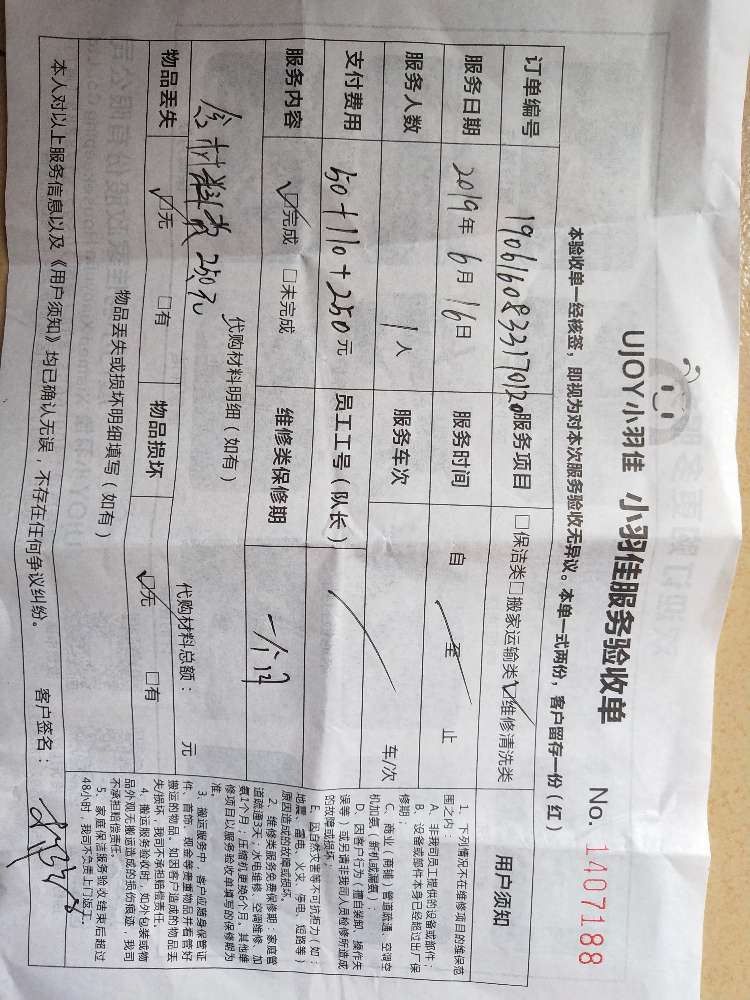 UJOY小羽佳 小羽佳服务验收单 No. 1407188
本验收单一经核签，即视为对本次服务验收无异议。本单一式两份，客户留存一份（红）
订单编号 1906160833170120 服务项目 □保洁类□搬家运输类☑维修清洗类
服务日期 2019年6月16日 服务时间 自 至 止
服务人数 1人 服务车次 车/次
支付费用 50+110+250元 员工工号（队长）
服务内容 ☑完成 □未完成 维修类保修期 一个月
代购材料明细（如有） 代购材料总额： 元
含材料费250元
物品丢失 ☑无 □有 物品损坏 ☑无 □有
物品丢失或损坏明细填写（如有）
本人对以上服务信息以及《用户须知》均已确认无误，不存在任何争议纠纷。 客户签名：
用户须知
1、下列情况不在维修项目的维保范
围之内：
A、非我司员工提供的设备或部件；
B、设备或部件本身已经超过出厂保
修期；
C、商业（商铺）管道疏通、空调空
机加氨（新机或漏氨）；
D、因客户行为（擅自装卸、操作失
误等）或另请非我司人员检修所造成
的故障或损坏；
E、因自然灾害等不可抗拒力（如：
地震、雷电、火灾、停电、短路等）
原因造成的故障或损坏。
2、维修类服务免费保修期：家庭管
道疏通3天；水电维修、空调维修、加
氨1个月；压缩机更换6个月，其他维
修项目以服务验收单填写的保修期为
准。
3、搬运服务中，客户应随身保管证
件、首饰、现金等贵重物品并看管好
搬运的物品。如因客户造成的物品丢
失/损坏，我司不承担赔偿责任。
4、搬运服务验收时，如外包装或物
品外观无搬运造成的损伤痕迹，我司
不承担赔偿责任。
5、家庭保洁服务验收结束后超过
48小时，我司不负责上门返工。